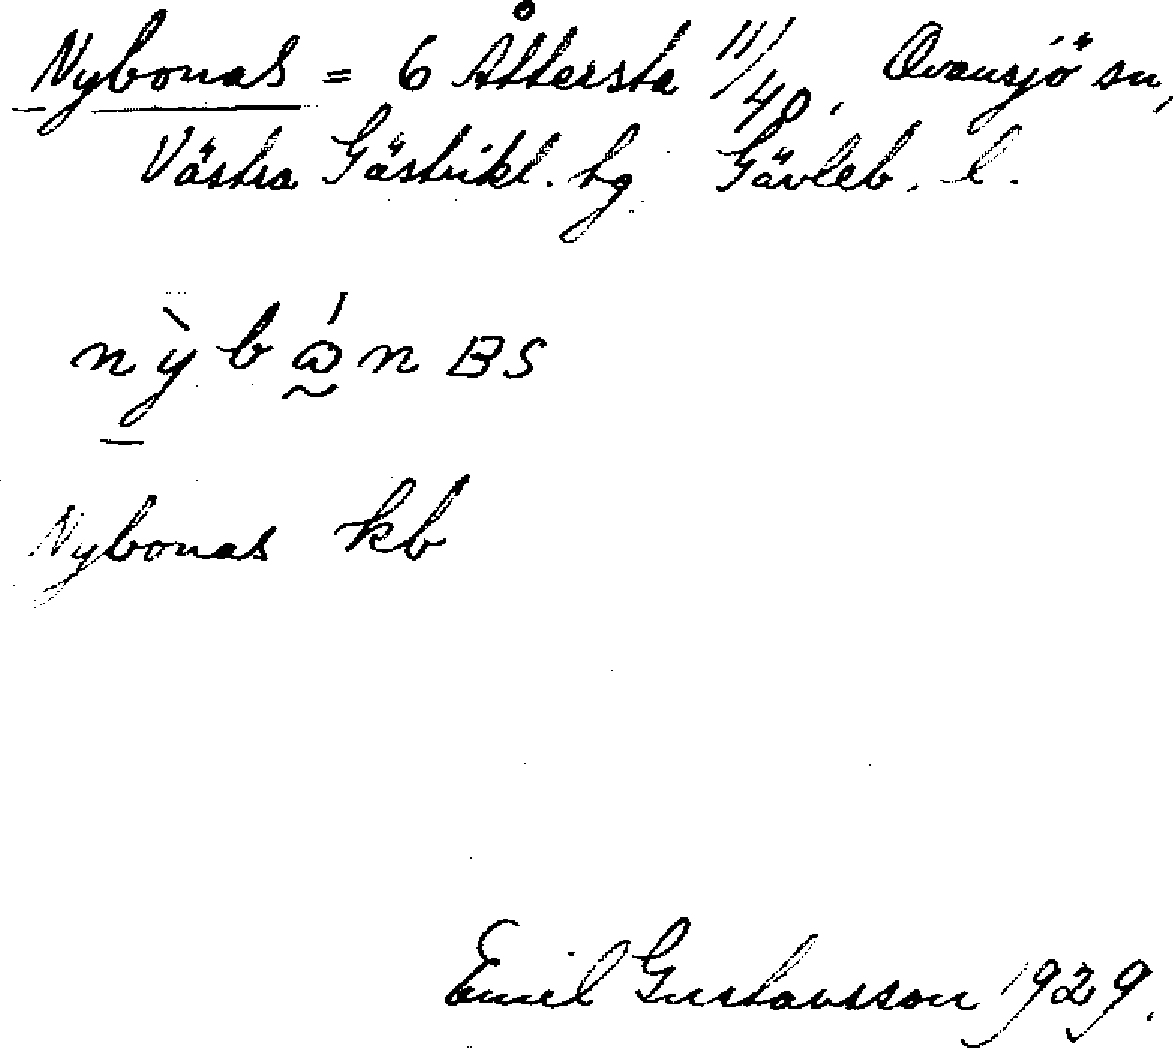 Nybonas = 6 Åttersta 11/40, Ovansjö sn,
Västra Gästrikl. hg Gävleb. l.
BS
Nybonas kb
Emil Gustavsson 1929.